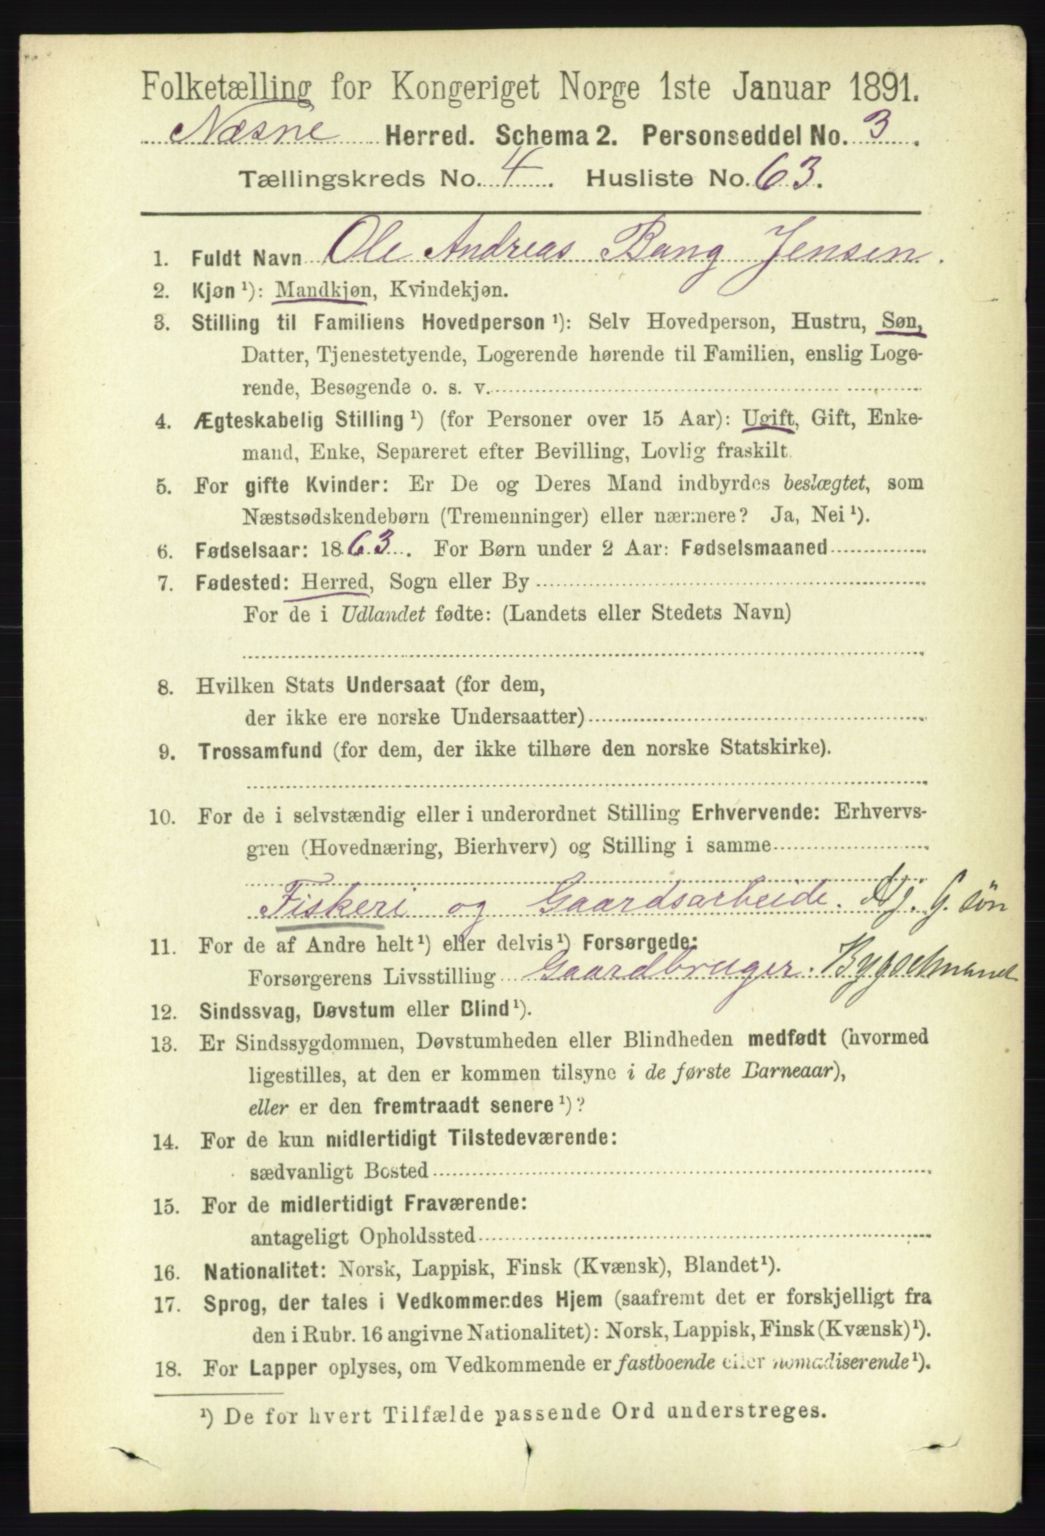 Folketælling for Kongeriget Norge 1ste Januar 1891.
Næsne Herred. Schema 2. Personseddel No. 3.
Tællingskreds No. 4. Husliste No. 63.
1. Fuldt Navn Ole Andreas Bang Jensen.
2. Kjøn ¹): Mandkjøn, Kvindekjøn.
3. Stilling til Familiens Hovedperson ¹): Selv Hovedperson, Hustru, Søn,
Datter, Tjenestetyende, Logerende hørende til Familien, enslig Loge-
rende, Besøgende o. s. v.
4. Ægteskabelig Stilling ¹) (for Personer over 15 Aar): Ugift, Gift, Enke-
mand, Enke, Separeret efter Bevilling, Lovlig fraskilt
5. For gifte Kvinder: Er De og Deres Mand indbyrdes beslægtet, som
Næstsødskendebørn (Tremenninger) eller nærmere? Ja, Nei ¹).
6. Fødselsaar: 1863. For Børn under 2 Aar: Fødselsmaaned
7. Fødested: Herred, Sogn eller By
For de i Udlandet fødte: (Landets eller Stedets Navn)
8. Hvilken Stats Undersaat (for dem,
der ikke ere norske Undersaatter)
9. Trossamfund (for dem, der ikke tilhøre den norske Statskirke).
10. For de i selvstændig eller i underordnet Stilling Erhvervende: Erhvervs-
gren (Hovednæring, Bierhverv) og Stilling i samme
Fiskeri og Gaardsarbeide. G. søn
11. For de af Andre helt ¹) eller delvis ¹) Forsørgede:
Forsørgerens Livsstilling Gaardbruger. Bygselmand
12. Sindssvag, Døvstum eller Blind ¹).
13. Er Sindssygdommen, Døvstumheden eller Blindheden medfødt (hvormed
ligestilles, at den er kommen tilsyne i de første Barneaar),
eller er den fremtraadt senere ¹)?
14. For de kun midlertidigt Tilstedeværende:
sædvanligt Bosted
15. For de midlertidigt Fraværende:
antageligt Opholdssted
16. Nationalitet: Norsk, Lappisk, Finsk (Kvænsk), Blandet ¹).
17. Sprog, der tales i Vedkommendes Hjem (saafremt det er forskjelligt fra
den i Rubr. 16 angivne Nationalitet): Norsk, Lappisk, Finsk (Kvænsk) ¹).
18. For Lapper oplyses, om Vedkommende er fastboende eller nomadiserende ¹).
¹) De for hvert Tilfælde passende Ord understreges.